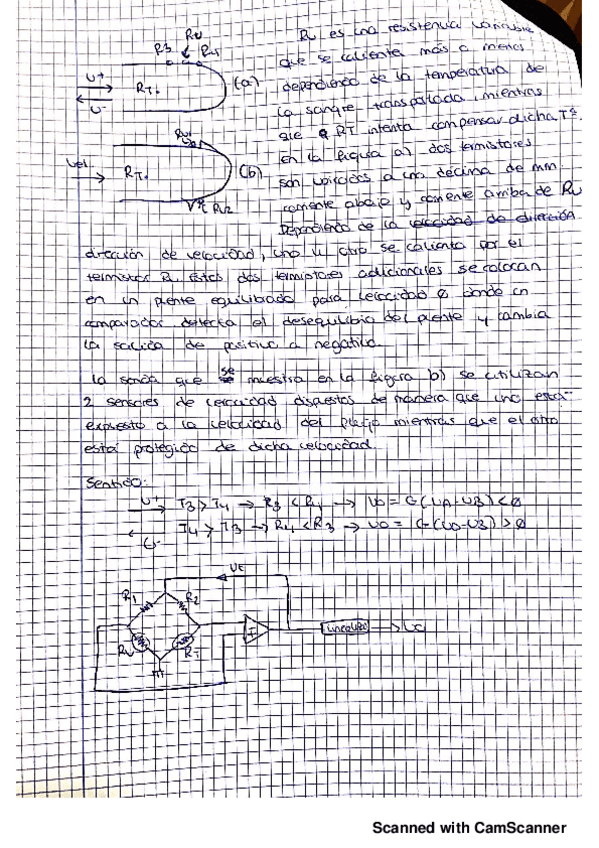 Ru
R3 Ru
U+
U-
RT.
(a)
Ru es una resistencia variable
que se calienta más o menos
dependiendo de la temperatura de
la sangre transportada, mientras
que RT intenta compensar dicha Tª
en la figura a) dos termistores
son ubicados a una décima de mm.
corriente abajo y corriente arriba de Ru
Dependiendo de la velocidad de dirección
Vel
RT.
(b)
Ru2
dirección de velocidad, uno u otro se calienta por el
termistor Ru. Estos dos termistores adicionales se colocan
en un puente equilibrado para velocidad 0 donde un
comparador detecta el desequilibrio del puente y cambia
la salida de positiva a negativa.
La sonda que se muestra en la figura b) se utilizan
2 sensores de velocidad dispuestos de manera que uno está
expuesto a la velocidad del flujo mientras que el otro
está protegido de dicha velocidad.
Sentido:
U+ T3 > T4 → R3 < R4 → U0 = G(UA-UB) < 0
U- T4 > T3 → R4 < R3 → U0 = G(UA-UB) > 0
UE
R1 R2
Ru RT
I
Scanned with CamScanner